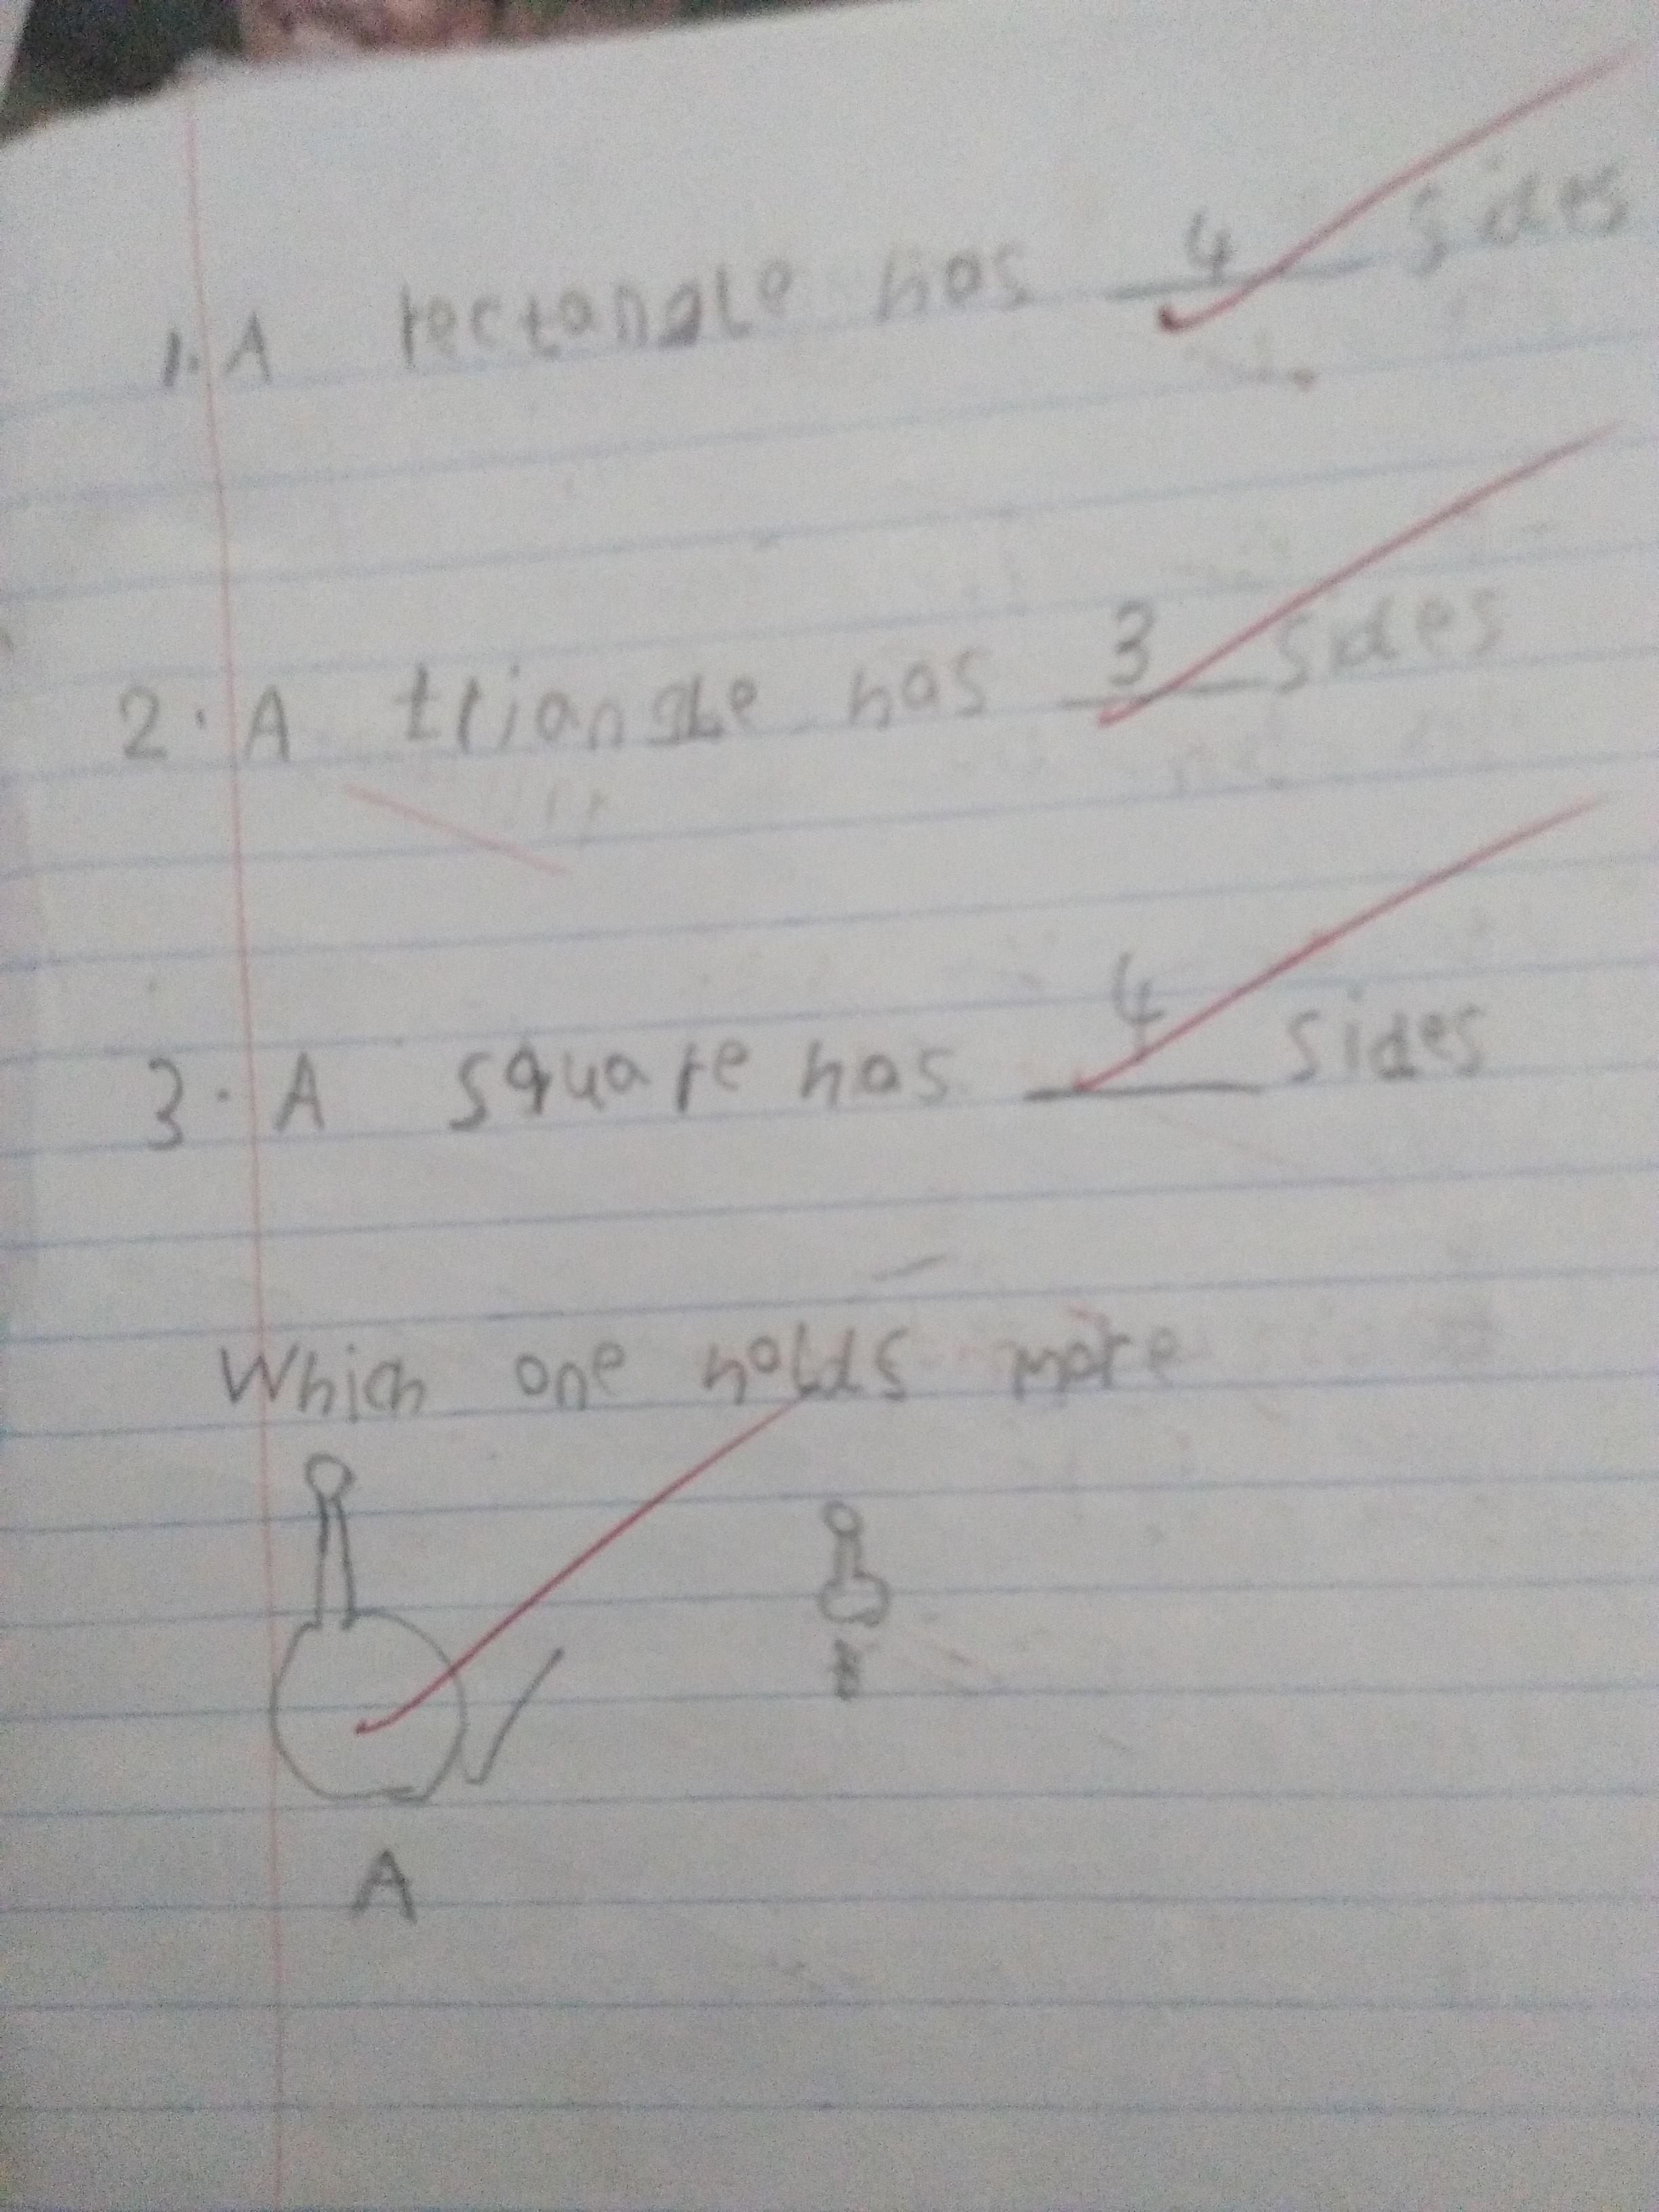 1. A rectangle has 4 sides
2. A triangle has 3 sides
3. A square has 4 sides
Which one holds more
A